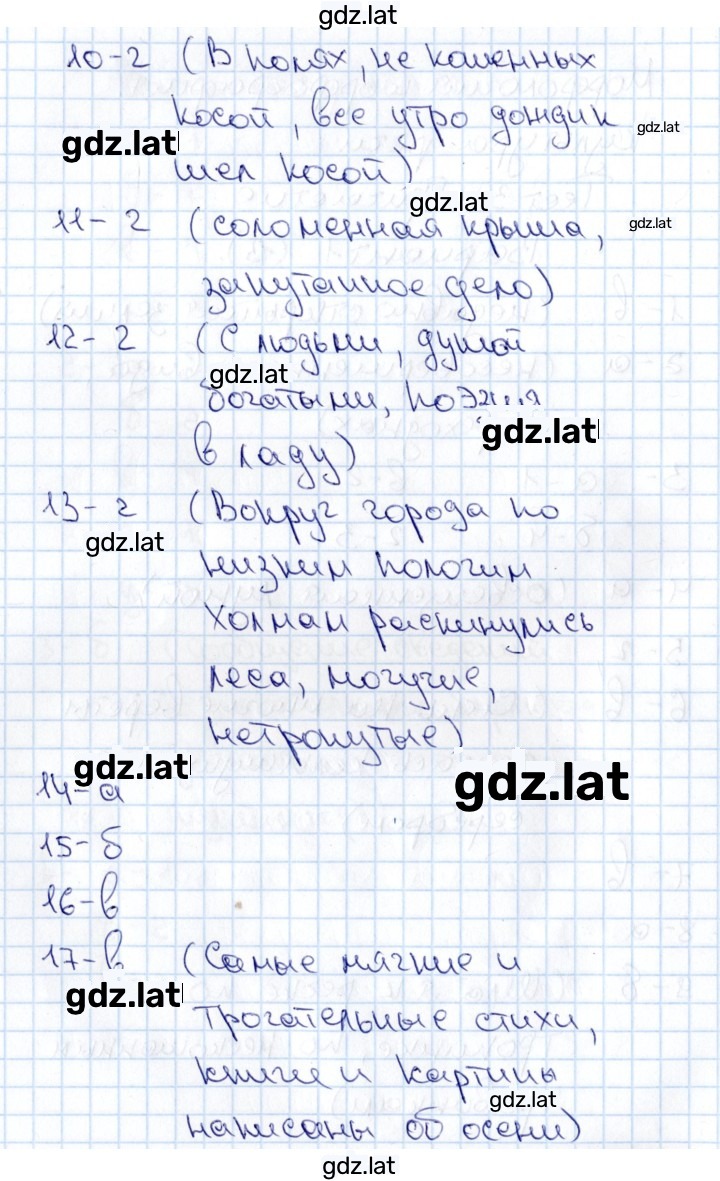 gdz.lat
10-г (В полях, не кошенных
косой, все утро дождик gdz.lat
gdz.lat
шел косой)
gdz.lat
11-г (соломенная крыша, gdz.lat
запутанное дело)
12-г (С людьми, душой
gdz.lat
богатыми,
gdz.lat
в ладу)
13-г (Вокруг города по
gdz.lat
низким пологим
холмам раскинулись
леса, могучие,
нетронутые)
gdz.lat
gdz.lat
14-а
15-б
16-в
17-в (Самые мягкие и
gdz.lat
трогательные стихи,
книги и картины
gdz.lat
написаны об осени)
gdz.lat